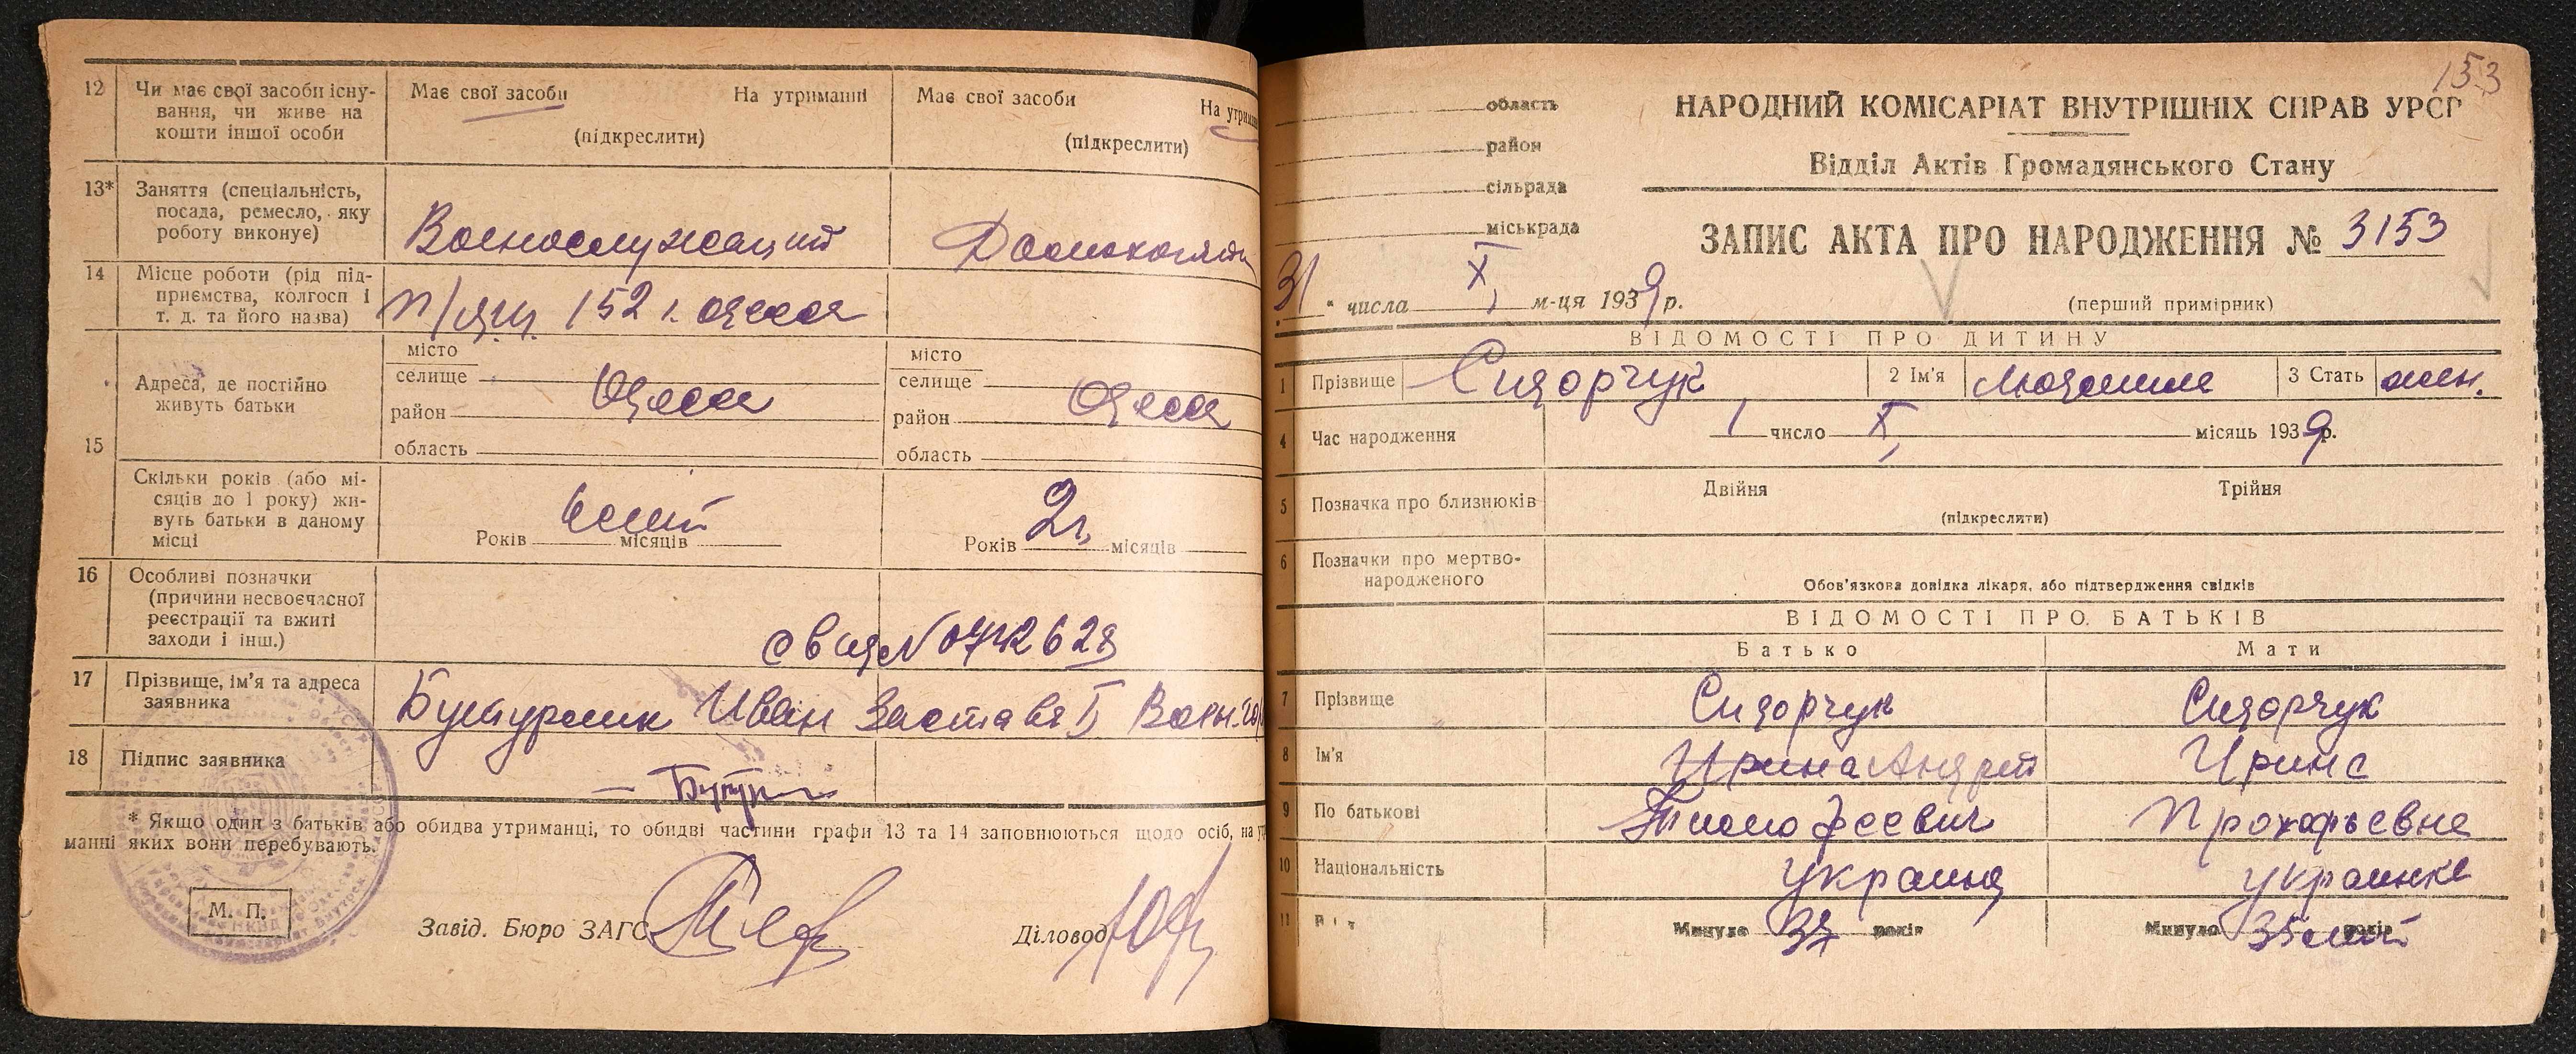 12 Чи має свої засоби існу-
вання, чи живе на
кошти іншої особи
Має свої засоби На утриманні
(підкреслити)
Має свої засоби
(підкреслити)
13* Заняття (спеціальність,
посада, ремесло, яку
роботу виконує)
Военослужащий Домохозяйк
14 Місце роботи (рід під-
приємства, колгосп і
т. д. та його назва)
п/ящ. 152 г. Одесса
15 Адреса, де постійно
живуть батьки
місто
селище
район Одесса
область
місто
селище
район Одесса
область
Скільки років (або мі-
сяців до 1 року) жи-
вуть батьки в даному
місці
Років 6 лет місяців
Років 2 г. місяців
16 Особливі позначки
(причини несвоєчасної
реєстрації та вжиті
заходи і інш.)
17 Прізвище, ім'я та адреса
заявника
Иван Застава II
18 Підпис заявника
* Якщо один з батьків або обидва утриманці, то обидві частини графи 13 та 14 заповнюються щодо осіб, на
манні яких вони перебувають.
М. П.
Завід. Бюро ЗАГС
Діловод
153
область
район
сільрада
міськрада
НАРОДНИЙ КОМІСАРІАТ ВНУТРІШНІХ СПРАВ УРСР
Відділ Актів Громадянського Стану
ЗАПИС АКТА ПРО НАРОДЖЕННЯ № 3153
31 " числа X, м-ця 1939 р.
(перший примірник)
ВІДОМОСТІ ПРО ДИТИНУ
1 Прізвище Сидорчук 2 Ім'я Людмила 3 Стать жен.
4 Час народження 1 число X, місяць 1939 р.
5 Позначка про близнюків Двійня Трійня
(підкреслити)
6 Позначки про мертво-
народженого
Обов'язкова довідка лікаря, або підтвердження свідків
ВІДОМОСТІ ПРО БАТЬКІВ
Батько Мати
7 Прізвище Сидорчук Сидорчук
8 Ім'я Ирина Андрей Ирина
9 По батькові Тимофеевич Прокофьевна
10 Національність украинц украинка
11 Минуло 37 років Минуло 35 лет років